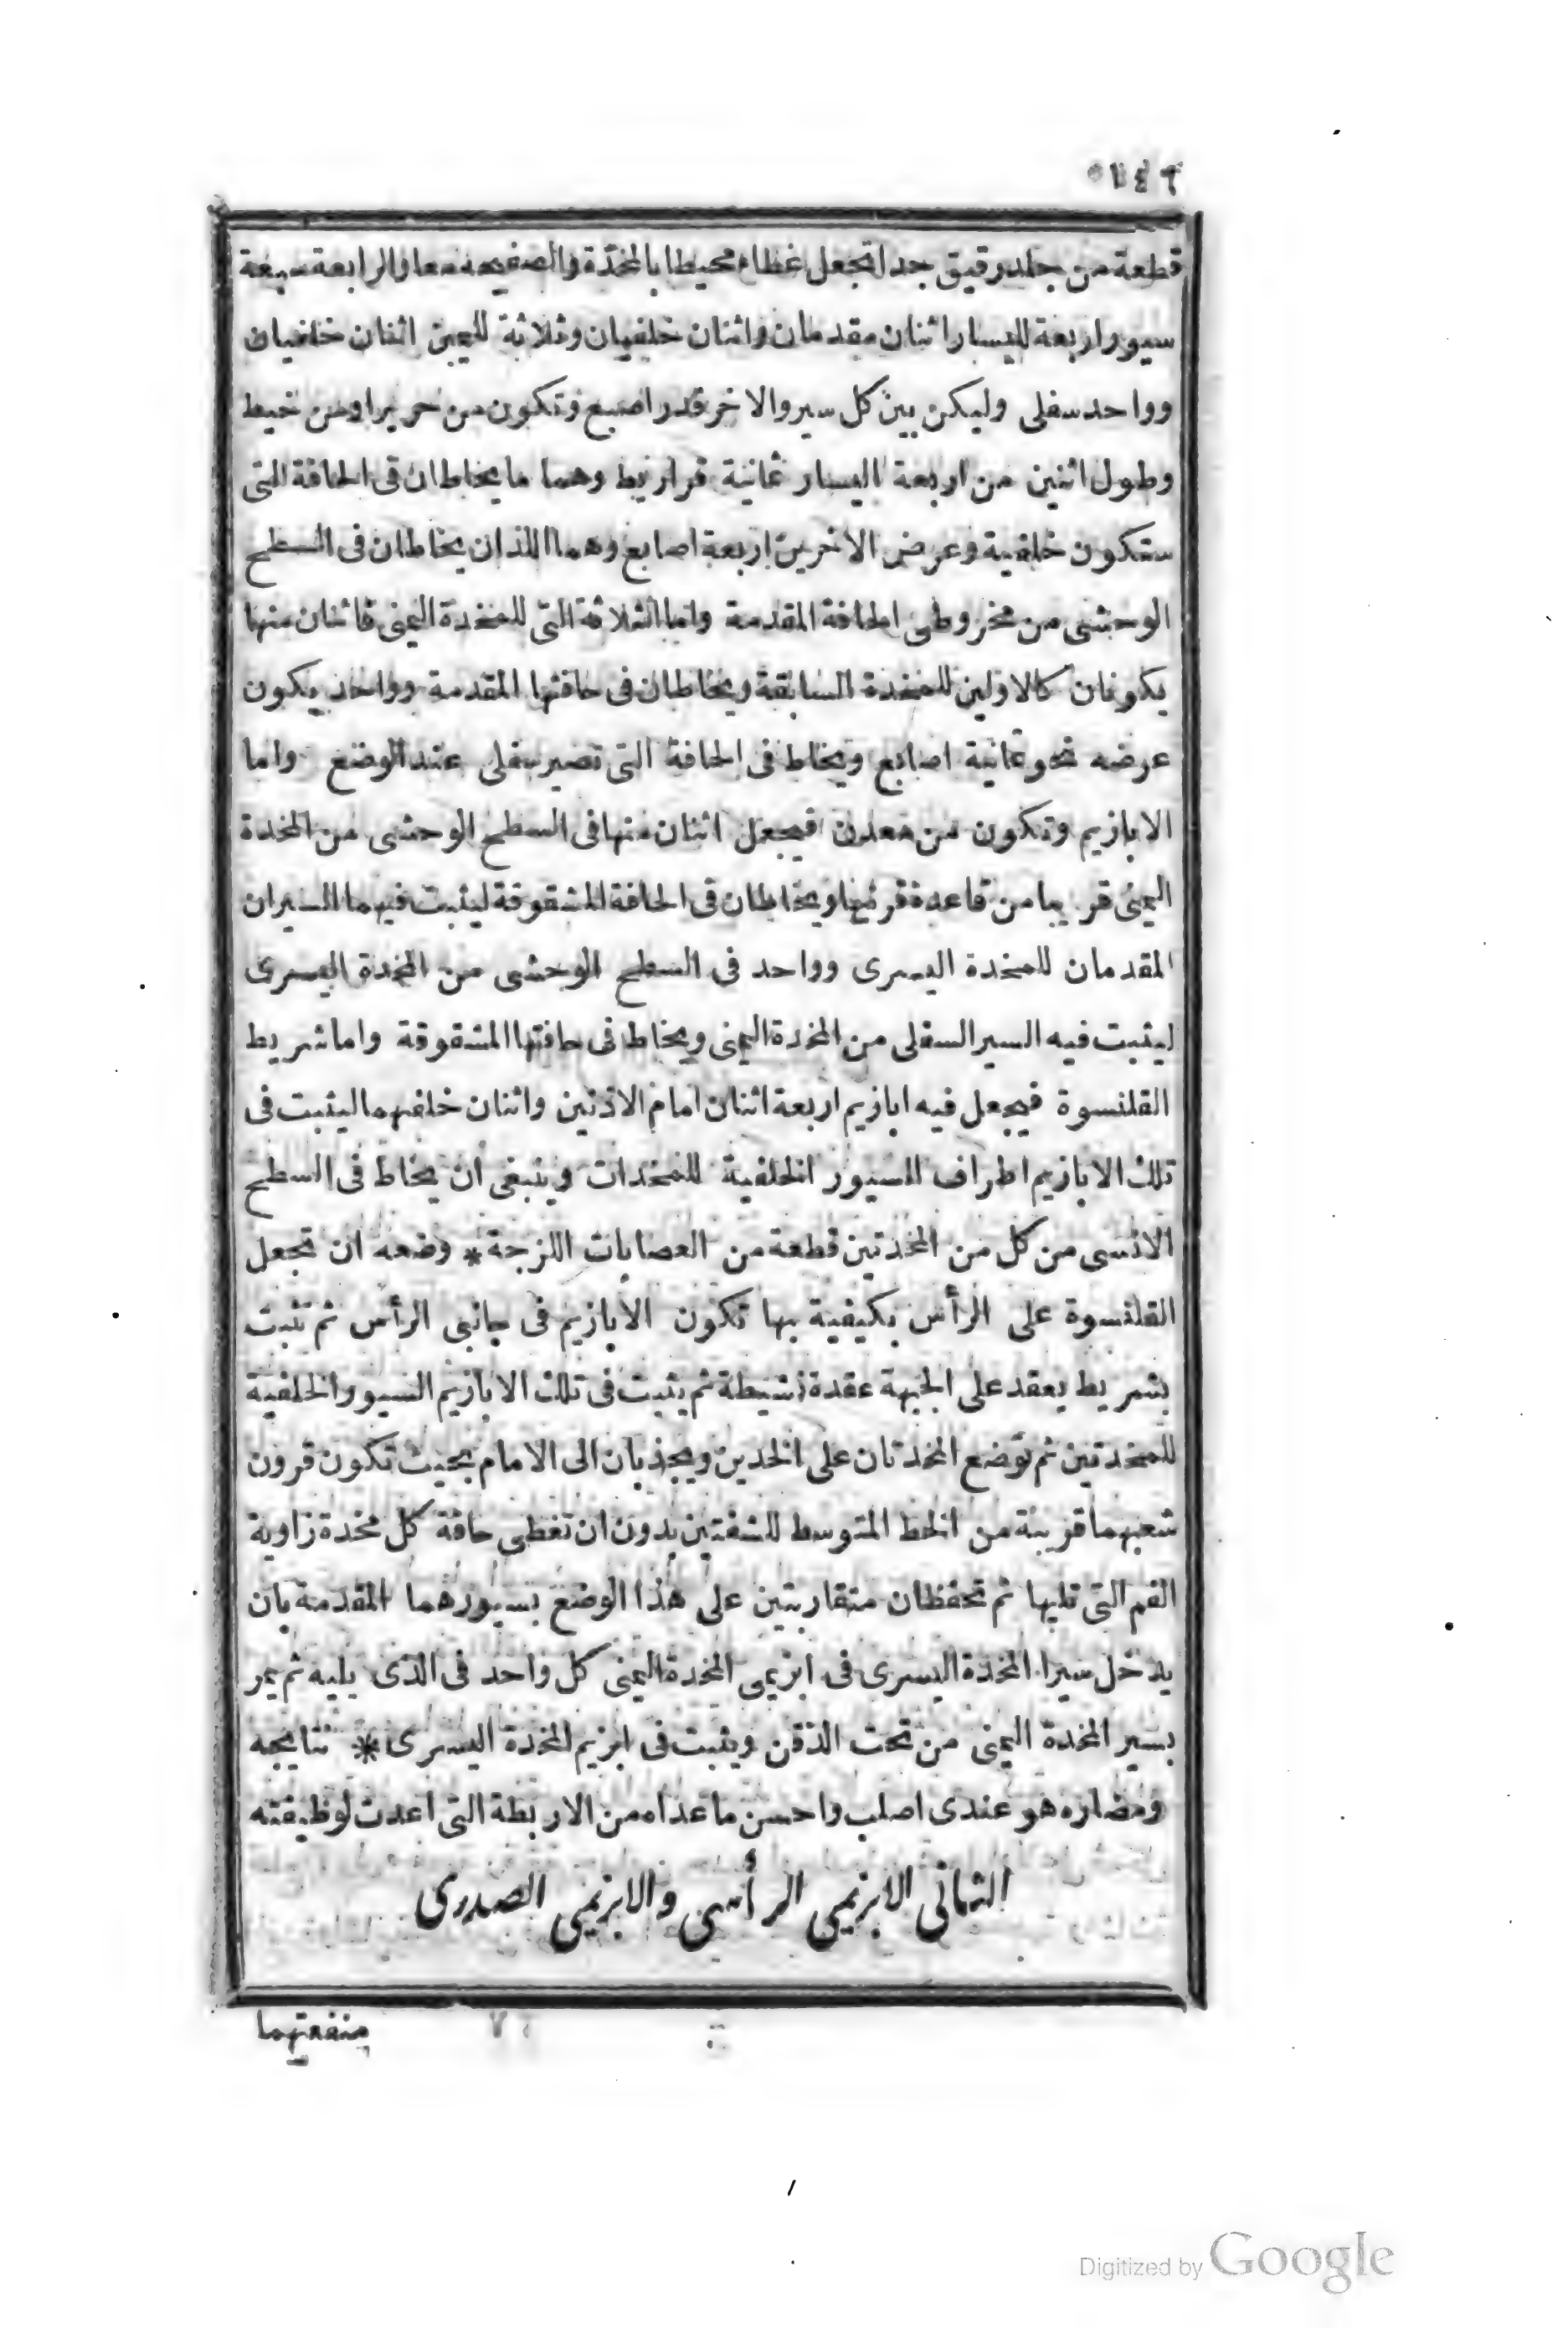 قطعة من جلد رقيق جدا تجعل غطاء محيطا بالمخدة والصفيحة معا والرابعة سبعة
سيور اربعة لليسار اثنان مقدمان واثنان خلفيان وثلاثة لليمنى اثنان خلفيان
وواحد سفلى وليكن بين كل سير والاخر قدر اصبع وتكون من حرير او من خيط
وطول اثنين من اربعة اليسار ثمانية قراريط وهما ما يخاطان فى الحافة التى
ستكون خلفية وعرض الاخرين اربعة اصابع وهما اللذان يخاطان فى السطح
الوحشى من مخروطى الحافة المقدمة واما الثلاثة التى للمخدة اليمنى فاثنان منها
يكونان كالاولين للمخدة السابقة ويخاطان فى حافتها المقدمة وواحد يكون
عرضه نحو ثمانية اصابع ويخاط فى الحافة التى تصير سفلى عند الوضع واما
الابازيم وتكون من معدن فيجعل اثنان منها فى السطح الوحشى من المخدة
اليمنى قريبا من قاعدة قرنيها ويخاطان فى الحافة المشقوقة ليثبت فيهما السيران
المقدمان للمخدة اليسرى وواحد فى السطح الوحشى من المخدة اليسرى
ليثبت فيه السير السفلى من المخدة اليمنى ويخاط فى حافتها المشقوقة واما شريط
القلنسوة فيجعل فيه ابازيم اربعة اثنان امام الاذنين واثنان خلفهما ليثبت فى
تلك الابازيم اطراف السيور الخلفية للمخدات وينبغى ان يخاط فى السطح
الانسى من كل من المخدتين قطعة من العصابات اللزجة * وضعه ان تجعل
القلنسوة على الرأس بكيفية بها تكون الابازيم فى جانبى الرأس ثم تثبت
بشريط يعقد على الجبهة عقدة نشيطة ثم يثبت فى تلك الابازيم السيور الخلفية
للمخدتين ثم توضع المخدتان على الخدين ويجذبان الى الامام بحيث تكون قرون
شعبهما قريبة من الخط المتوسط للشفتين بدون ان تغطى حافة كل مخدة زاوية
الفم التى تليها ثم تحفظان متقاربتين على هذا الوضع بسيورهما المقدمة بان
يدخل سيرا المخدة اليسرى فى ابزيمى المخدة اليمنى كل واحد فى الذى يليه ثم يمر
بسير المخدة اليمنى من تحت الذقن ويثبت فى ابزيم المخدة اليسرى * نتايجه
ومضاره هو عندى اصلب واحسن ما عداه من الاربطة التى اعدت لوظيفته
الثمانى الابزيمى الرأسى والابزيمى الصدرى
منفعتهما
Digitized by Google